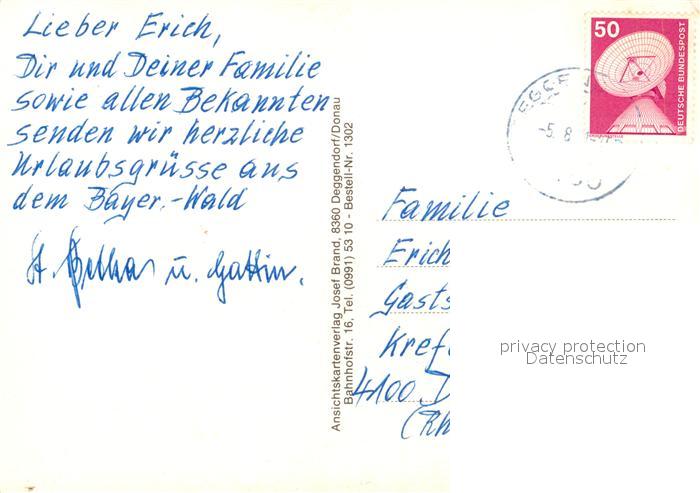 Lieber Erich,
Dir und Deiner Familie
sowie allen Bekannten
senden wir herzliche
Urlaubsgrüsse aus
dem Bayer.-Wald
u. Gattin.
Ansichtskartenverlag Josef Brand, 8360 Deggendorf/Donau
Bahnhofstr. 16, Tel. (0991) 53 10 - Bestell-Nr. 1302
50
DEUTSCHE BUNDESPOST
-5.8
Familie
Erich
Gasts
Krefe
4100 D
(Rh
privacy protection
Datenschutz